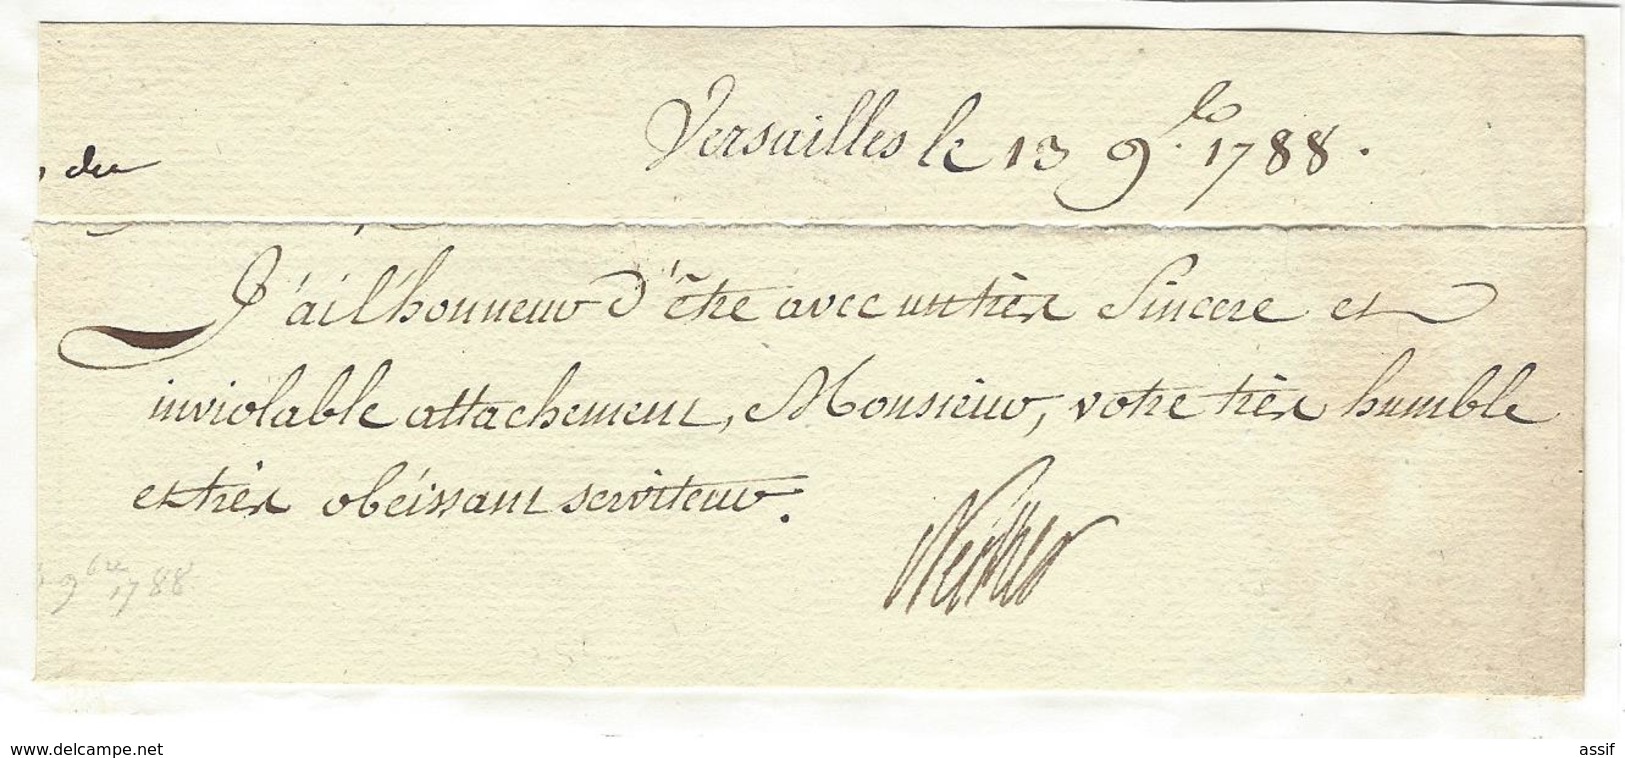 Versailles le 13 9.bre 1788.
du
J'ai l'honneur d'être avec un très Sincere et
inviolable attachement, Monsieur, votre très humble
et très obéissant serviteur.
Necker
9bre 1788
www.delcampe.net
assif